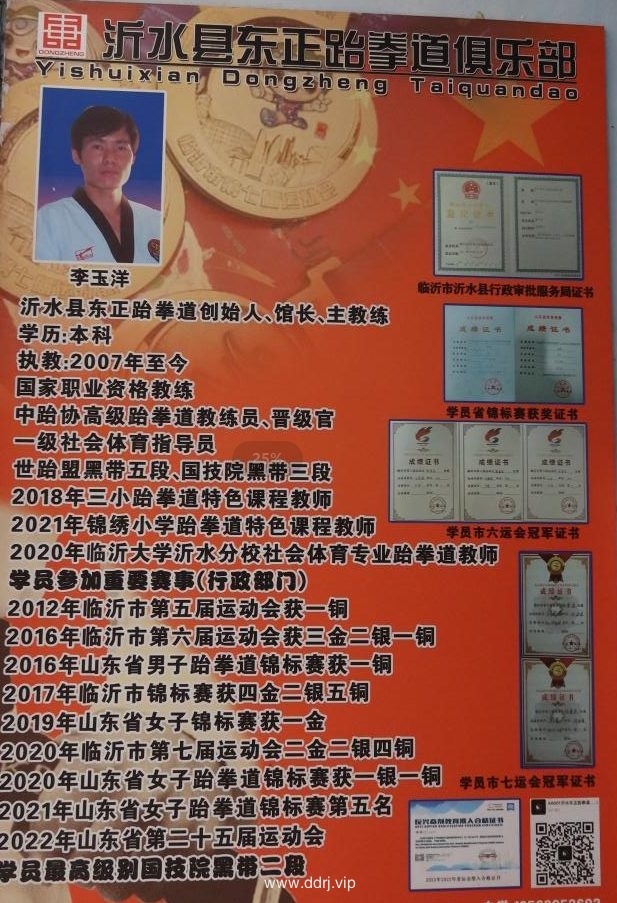 DONGZHENG
沂水县东正跆拳道俱乐部
Yishuixian Dongzheng Taiquandao
李玉洋
沂水县东正跆拳道创始人、馆长、主教练
学历:本科
执教:2007年至今
国家职业资格教练
中跆协高级跆拳道教练员、晋级官
一级社会体育指导员
25%
世跆盟黑带五段、国技院黑带三段
2018年三小跆拳道特色课程教师
2021年锦绣小学跆拳道特色课程教师
2020年临沂大学沂水分校社会体育专业跆拳道教师
学员参加重要赛事(行政部门)
2012年临沂市第五届运动会获一铜
2016年临沂市第六届运动会获三金二银一铜
2016年山东省男子跆拳道锦标赛获一铜
2017年临沂市锦标赛获四金二银五铜
2019年山东省女子锦标赛获一金
2020年临沂市第七届运动会二金二银四铜
2020年山东省女子跆拳道锦标赛获一银一铜
2021年山东省女子跆拳道锦标赛第五名
2022年山东省第二十五届运动会
学员最高级别国技院黑带二段
登记证书
临沂市沂水县行政审批服务局证书
成绩证书
成绩证书
学员省锦标赛获奖证书
成绩证书
成绩证书
成绩证书
学员市六运会冠军证书
成绩证书
成绩证书
学员市七运会冠军证书
www.ddrj.vip